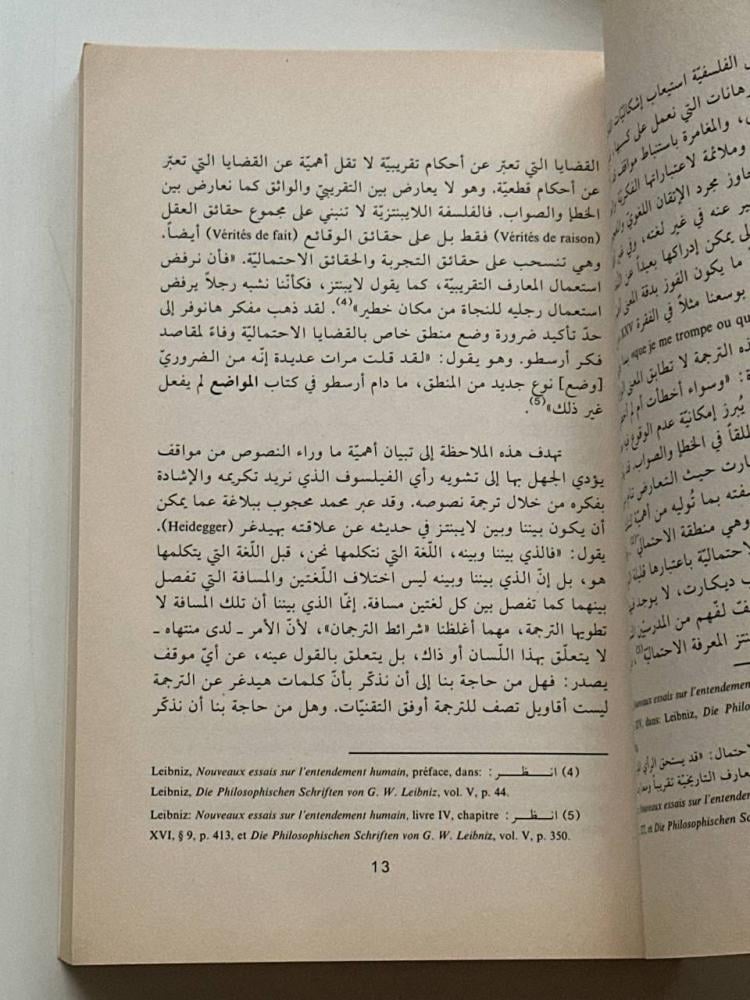 القضايا التي تعبّر عن أحكام تقريبيّة لا تقل أهميّة عن القضايا التي تعبّر
عن أحكام قطعيّة. وهو لا يعارض بين التقريبيّ والواثق كما نعارض بين
الخطإ والصواب. فالفلسفة اللايبنتزيّة لا تنبني على مجموع حقائق العقل
(Vérités de raison) فقط بل على حقائق الوقائع (Vérités de fait) أيضاً.
وهي تنسحب على حقائق التجربة والحقائق الاحتماليّة. «فأن نرفض
استعمال المعارف التقريبيّة، كما يقول لايبنتز، فكأنّنا نشبه رجلاً يرفض
استعمال رجليه للنجاة من مكان خطير»(4). لقد ذهب مفكر هانوفر إلى
حدّ تأكيد ضرورة وضع منطق خاص بالقضايا الاحتماليّة وفاءً لمقاصد
فكر أرسطو. وهو يقول: «لقد قلت مرات عديدة إنّه من الضروريّ
[وضع] نوع جديد من المنطق، ما دام أرسطو في كتاب المواضع لم يفعل
غير ذلك»(5).
تهدف هذه الملاحظة إلى تبيان أهميّة ما وراء النصوص من مواقف
يؤدي الجهل بها إلى تشويه رأي الفيلسوف الذي نريد تكريمه والإشادة
بفكره من خلال ترجمة نصوصه. وقد عبر محمد محجوب ببلاغة عما يمكن
أن يكون بيننا وبين لايبنتز في حديثه عن علاقته بهيدغر (Heidegger).
يقول: «فالذي بيننا وبينه، اللّغة التي نتكلمها نحن، قبل اللّغة التي يتكلمها
هو، بل إنّ الذي بيننا وبينه ليس اختلاف اللّغتين والمسافة التي تفصل
بينهما كما تفصل بين كل لغتين مسافة. إنّما الذي بيننا أن تلك المسافة لا
تطويها الترجمة، مهما أغلظنا «شرائط الترجمان»، لأنّ الأمر ـ لدى منتهاه ـ
لا يتعلّق بهذا اللّسان أو ذاك، بل يتعلق بالقول عينه، عن أيّ موقف
يصدر: فهل من حاجة بنا إلى أن نذكّر بأنّ كلمات هيدغر عن الترجمة
ليست أقاويل تصف للترجمة أوفق التقنيّات. وهل من حاجة بنا أن نذكّر
(4) انظر: Leibniz, Nouveaux essais sur l'entendement humain, préface, dans:
Leibniz, Die Philosophischen Schriften von G. W. Leibniz, vol. V, p. 44.
(5) انظر: Leibniz: Nouveaux essais sur l'entendement humain, livre IV, chapitre
XVI, § 9, p. 413, et Die Philosophischen Schriften von G. W. Leibniz, vol. V, p. 350.
13
الفلسفيّة استيعاب إشكاليّات
التي نعمل على
والمغامرة باستنباط
وملائمة لاعتباراتها الفكريّة
مجرد الإتقان اللغويّ
عنه في غير لغته،
يمكن إدراكها بعيداً عن
ما يكون الفوز بدقة المعنى
بوسعنا مثلاً في الفقرة XXV
que je me trompe ou
الترجمة لا تطابق
: «وسواء أخطأت أم
يُبرز إمكانيّة عدم الوقوع
في الخطإ والصواب.
حيث التعارض
بما تُوليه من أهميّة
وهي منطقة الاحتمال
باعتبارها
ديكارت، لا يوجد
لفّهم من المدرسيّين
المعرفة الاحتماليّة
essais sur l'entendement
dans: Leibniz, Die Philo
: «قد يستحق الرأي
التاريخيّة تقريباً
essais sur l'entendement
et Die Philosophischen